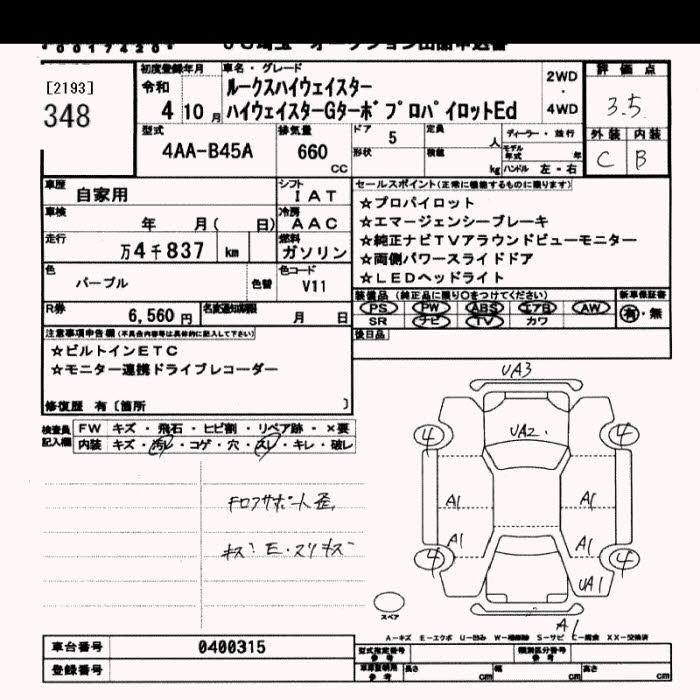 [2193]
348
初度登録年月
令和
4 10 月
車名・グレード
ルークスハイウェイスター
ハイウェイスターGターボ プロパイロットEd
2WD
・
4WD
評価点
3.5
外装 内装
C B
型式
4AA-B45A
排気量
660
CC
ドア 5
形状
定員
人
積載
kg
ディーラー・並行
モデル年式 年
ハンドル 左・右
車歴
自家用
シフト
I AT
車検
年 月( 日)
冷房
A AC
走行
万4千837 km
燃料
ガソリン
色
パープル
色替
色コード
V11
R券
6,560 円
名変通知期限
月 日
セールスポイント(正常に機能するものに限ります)
☆プロパイロット
☆エマージェンシーブレーキ
☆純正ナビTVアラウンドビューモニター
☆両側パワースライドドア
☆LEDヘッドライト
装備品 (純正品に限り〇をつけてください)
PS PW ABS エアB AW
SR ナビ TV カワ
新車保証書
有・無
後日品
注意事項申告欄(不具合内容等は具体的に記入して下さい)
☆ビルトインETC
☆モニター連携ドライブレコーダー
修復歴 有〔箇所 〕
検査員記入欄
FW キズ・飛石・ヒビ割・リペア跡・×要
内装 キズ・汚レ・コゲ・穴・スレ・キレ・破レ
Fロアサポート歪,
キズ
UA3
4
UA2
4
A1
A1
A1
A1
4
4
UA1
A1
スペア
A-キズ E-エクボ U-凹み W-補修跡 S-サビ C-腐食 XX-交換済
車台番号
0400315
登録番号
型式指定番号
参考
類別区分番号
参考
車庫証明用
参考
長さ cm
幅 cm
高さ cm